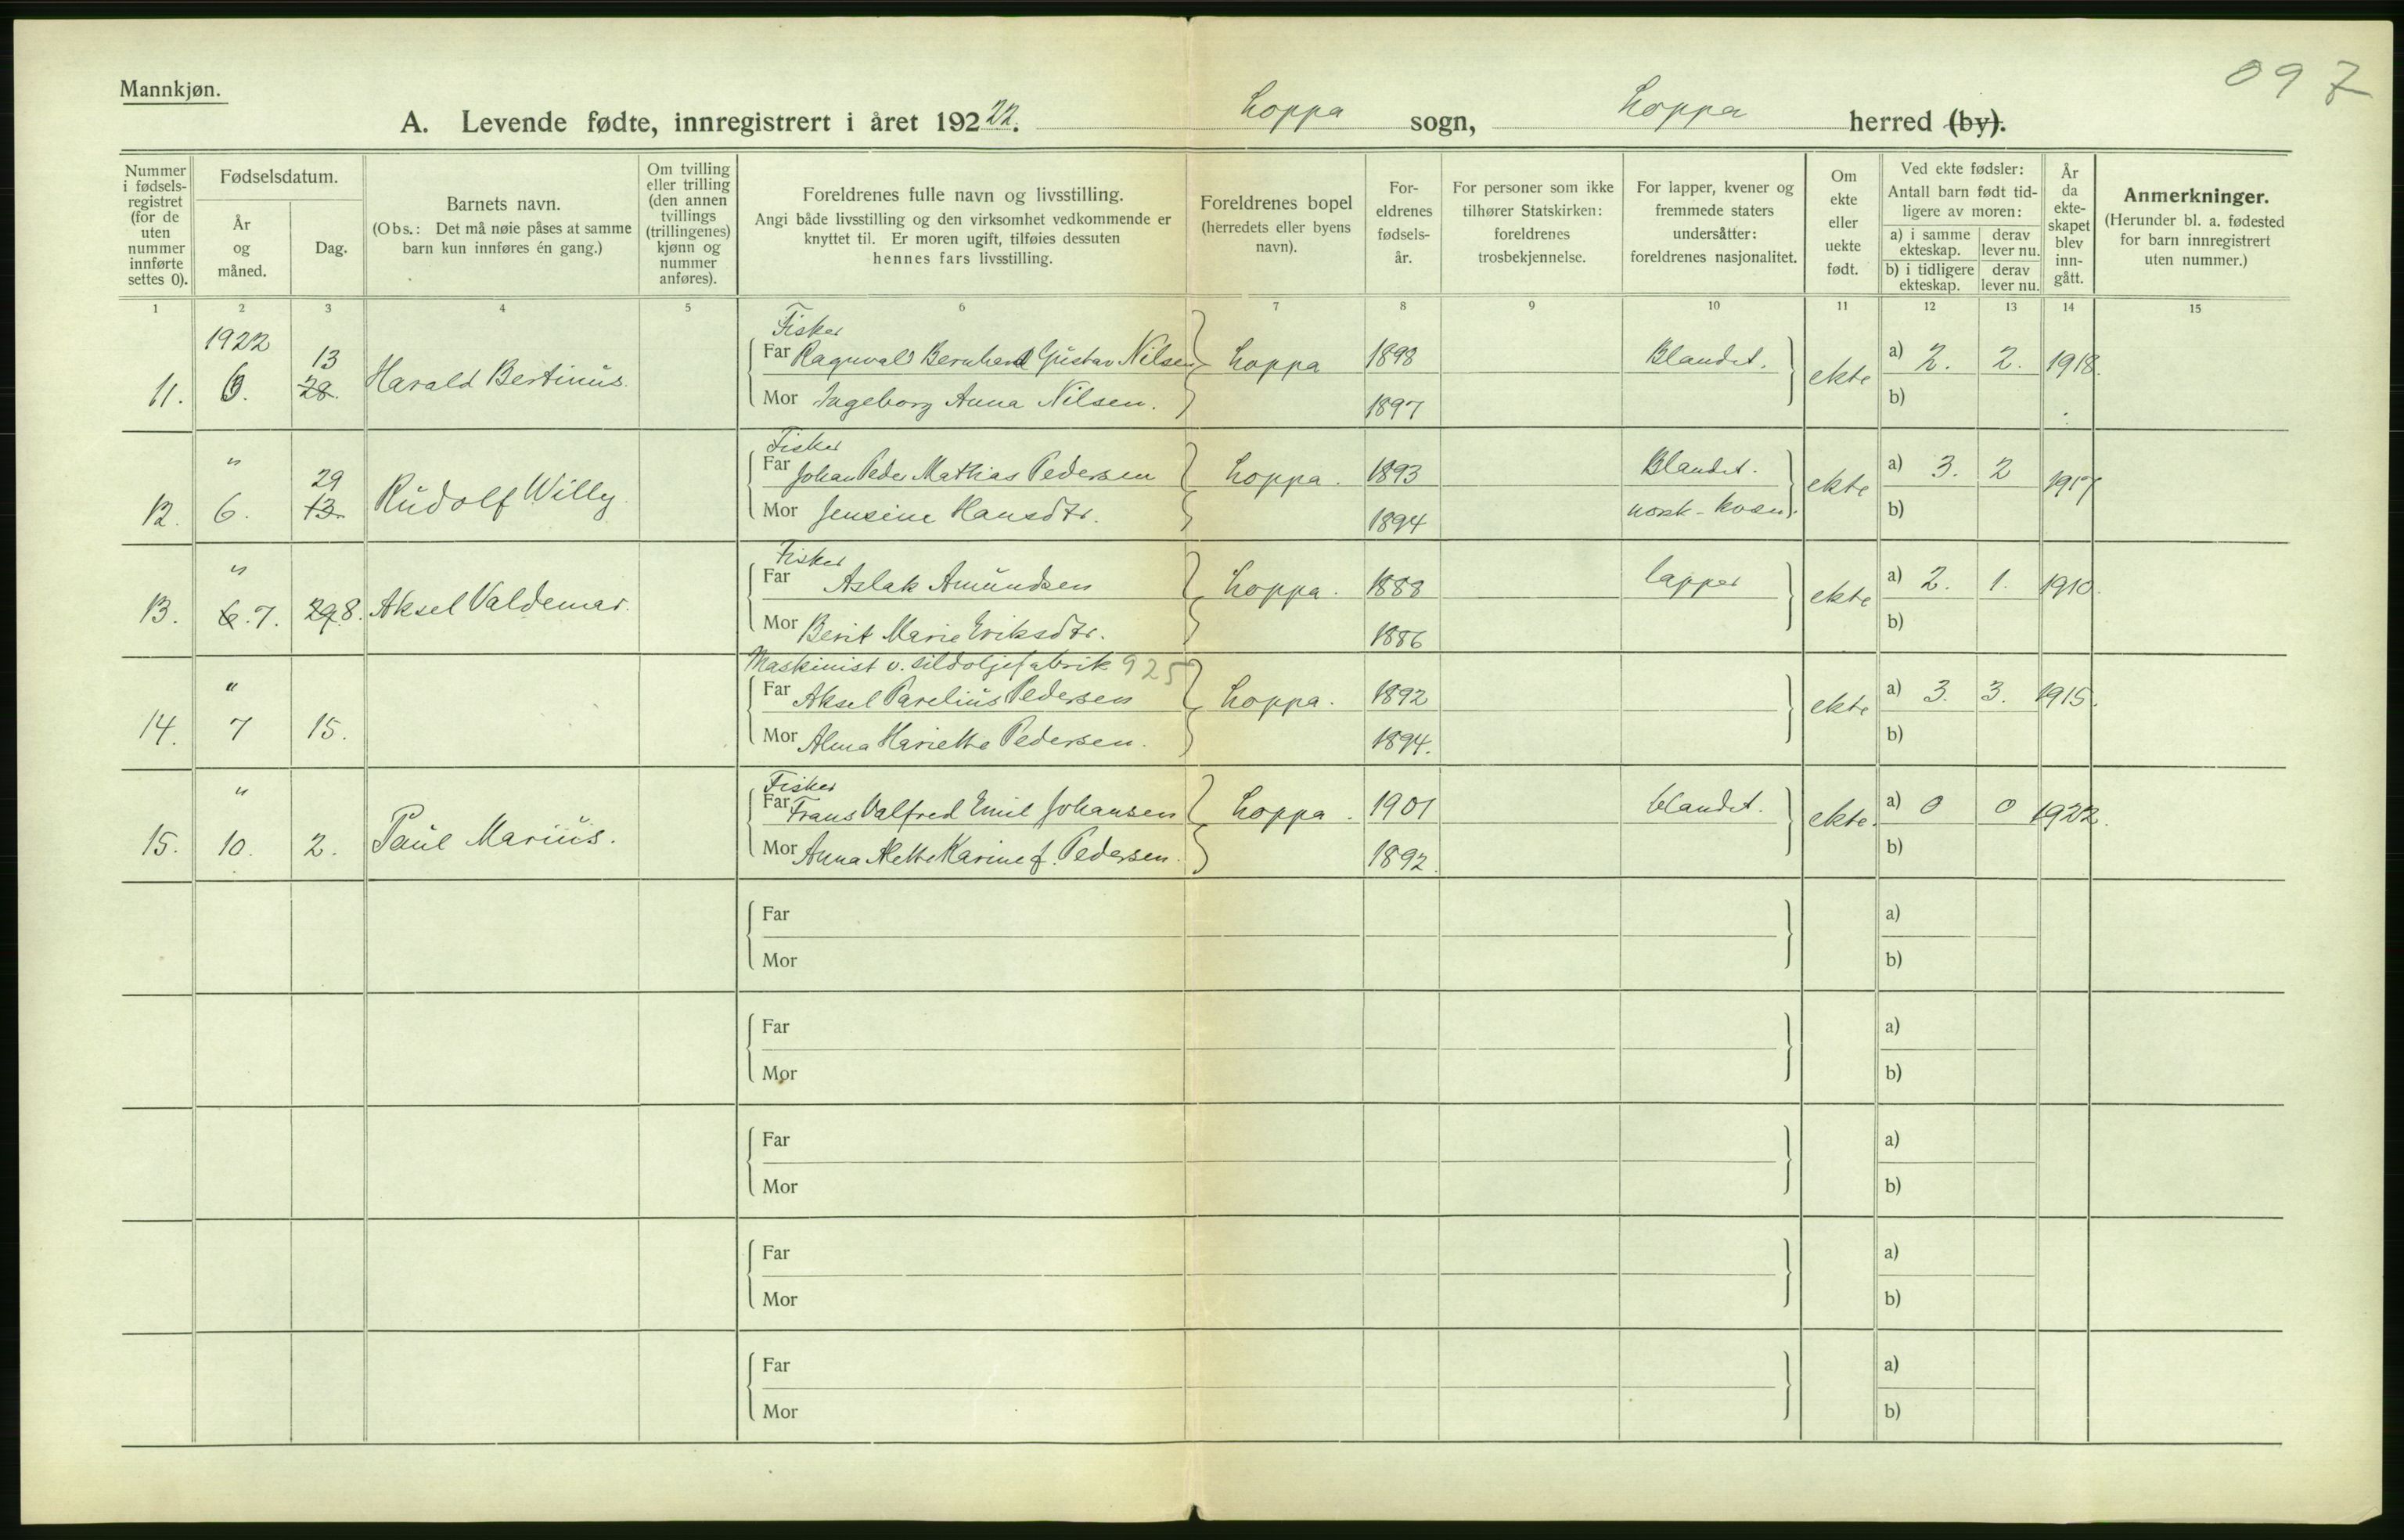 097
Mannkjøn.
A. Levende fødte, innregistrert i året 19222. Loppa sogn, Loppa herred (by).
Nummer i fødsels-registret (for de uten nummer innførte settes 0).
Fødselsdatum.
År og måned.
Dag.
Barnets navn.
(Obs.: Det må nøie påses at samme barn kun innføres én gang.)
Om tvilling eller trilling (den annen tvillings (trillingenes) kjønn og nummer anføres).
Foreldrenes fulle navn og livsstilling.
Angi både livsstilling og den virksomhet vedkommende er knyttet til. Er moren ugift, tilføies dessuten hennes fars livsstilling.
Foreldrenes bopel (herredets eller byens navn).
For-eldrenes fødsels-år.
For personer som ikke tilhører Statskirken: foreldrenes trosbekjennelse.
For lapper, kvener og fremmede staters undersåtter: foreldrenes nasjonalitet.
Om ekte eller uekte født.
Ved ekte fødsler: Antall barn født tid-ligere av moren:
a) i samme ekteskap. derav lever nu.
b) i tidligere ekteskap. derav lever nu.
År da ekte-skapet blev inn-gått.
Anmerkninger.
(Herunder bl. a. fødested for barn innregistrert uten nummer.)
1 2 3 4 5 6 7 8 9 10 11 12 13 14 15
Fisker
1922 13 Far Ragnvald Bernhard Gustav Nilsen Loppa 1898 Blandet. a) 2. 2. 1918.
11. 6. 28. Harald Bertinus. Mor Ingeborg Anna Nilsen. 1897 ekte b)
Fisker
" 29 Far Johan Peder Mathias Pedersen Loppa. 1893 Blandet. a) 3. 2 1917
12. 6. 13. Rudolf Willy. Mor Jensine Hansdtr. 1894 norsk-kvæn. ekte b)
Fisker
" Far Aslak Amundsen Loppa. 1888 lapper a) 2. 1. 1910.
13. 6. 7. 29. 8. Aksel Valdemar. Mor Berit Marie Eriksdtr. 1886 ekte b)
Maskinist v. sildoljefabrik 925
" Far Aksel Parelius Pedersen Loppa. 1892 a) 3. 3. 1915.
14. 7 15. Mor Alma Hariette Pedersen. 1894. ekte b)
Fisker
" Far Frans Valfred Emil Johansen Loppa. 1901 blandet. a) 0 0 1922.
15. 10. 2. Paul Marius. Mor Anna Mette Karine f. Pedersen. 1892. ekte. b)
Far a)
Mor b)
Far a)
Mor b)
Far a)
Mor b)
Far a)
Mor b)
Far a)
Mor b)